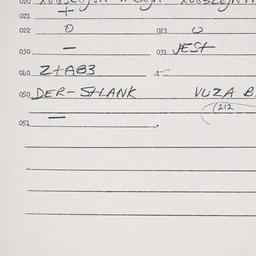 020
021 +
022 0 023 0
030 — 031 JEST
040 Z+AB3
050 DER-SHLANK VUZA B
— (212
051